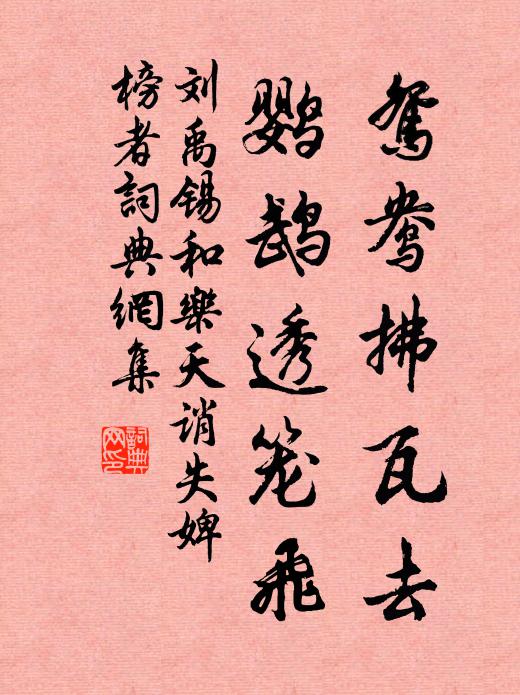 鸳鸯拂瓦去
鹦鹉透笼飞
刘禹锡和樂天消失婢
榜者詞典網集
詞典
网印